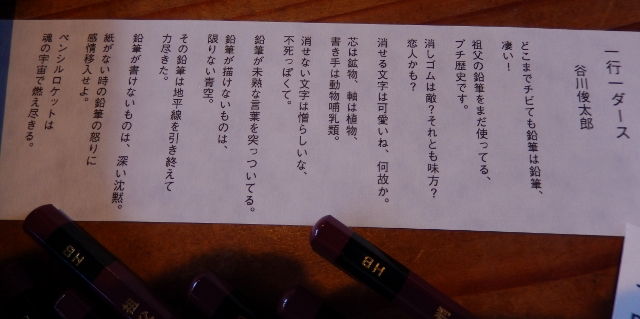 一行一ダース
谷川俊太郎
どこまでチビても鉛筆は鉛筆、
凄い！
祖父の鉛筆をまだ使ってる、
プチ歴史です。
消しゴムは敵？それとも味方？
恋人かも？
消せる文字は可愛いね、何故か。
芯は鉱物、軸は植物、
書き手は動物哺乳類。
消せない文字は憎らしいな、
不死っぽくて。
鉛筆が未熟な言葉を突っついてる。
鉛筆が描けないものは、
限りない青空。
その鉛筆は地平線を引き終えて
力尽きた。
鉛筆が書けないものは、深い沈黙。
紙がない時の鉛筆の怒りに
感情移入せよ。
ペンシルロケットは
魂の宇宙で燃え尽きる。
HB
HB